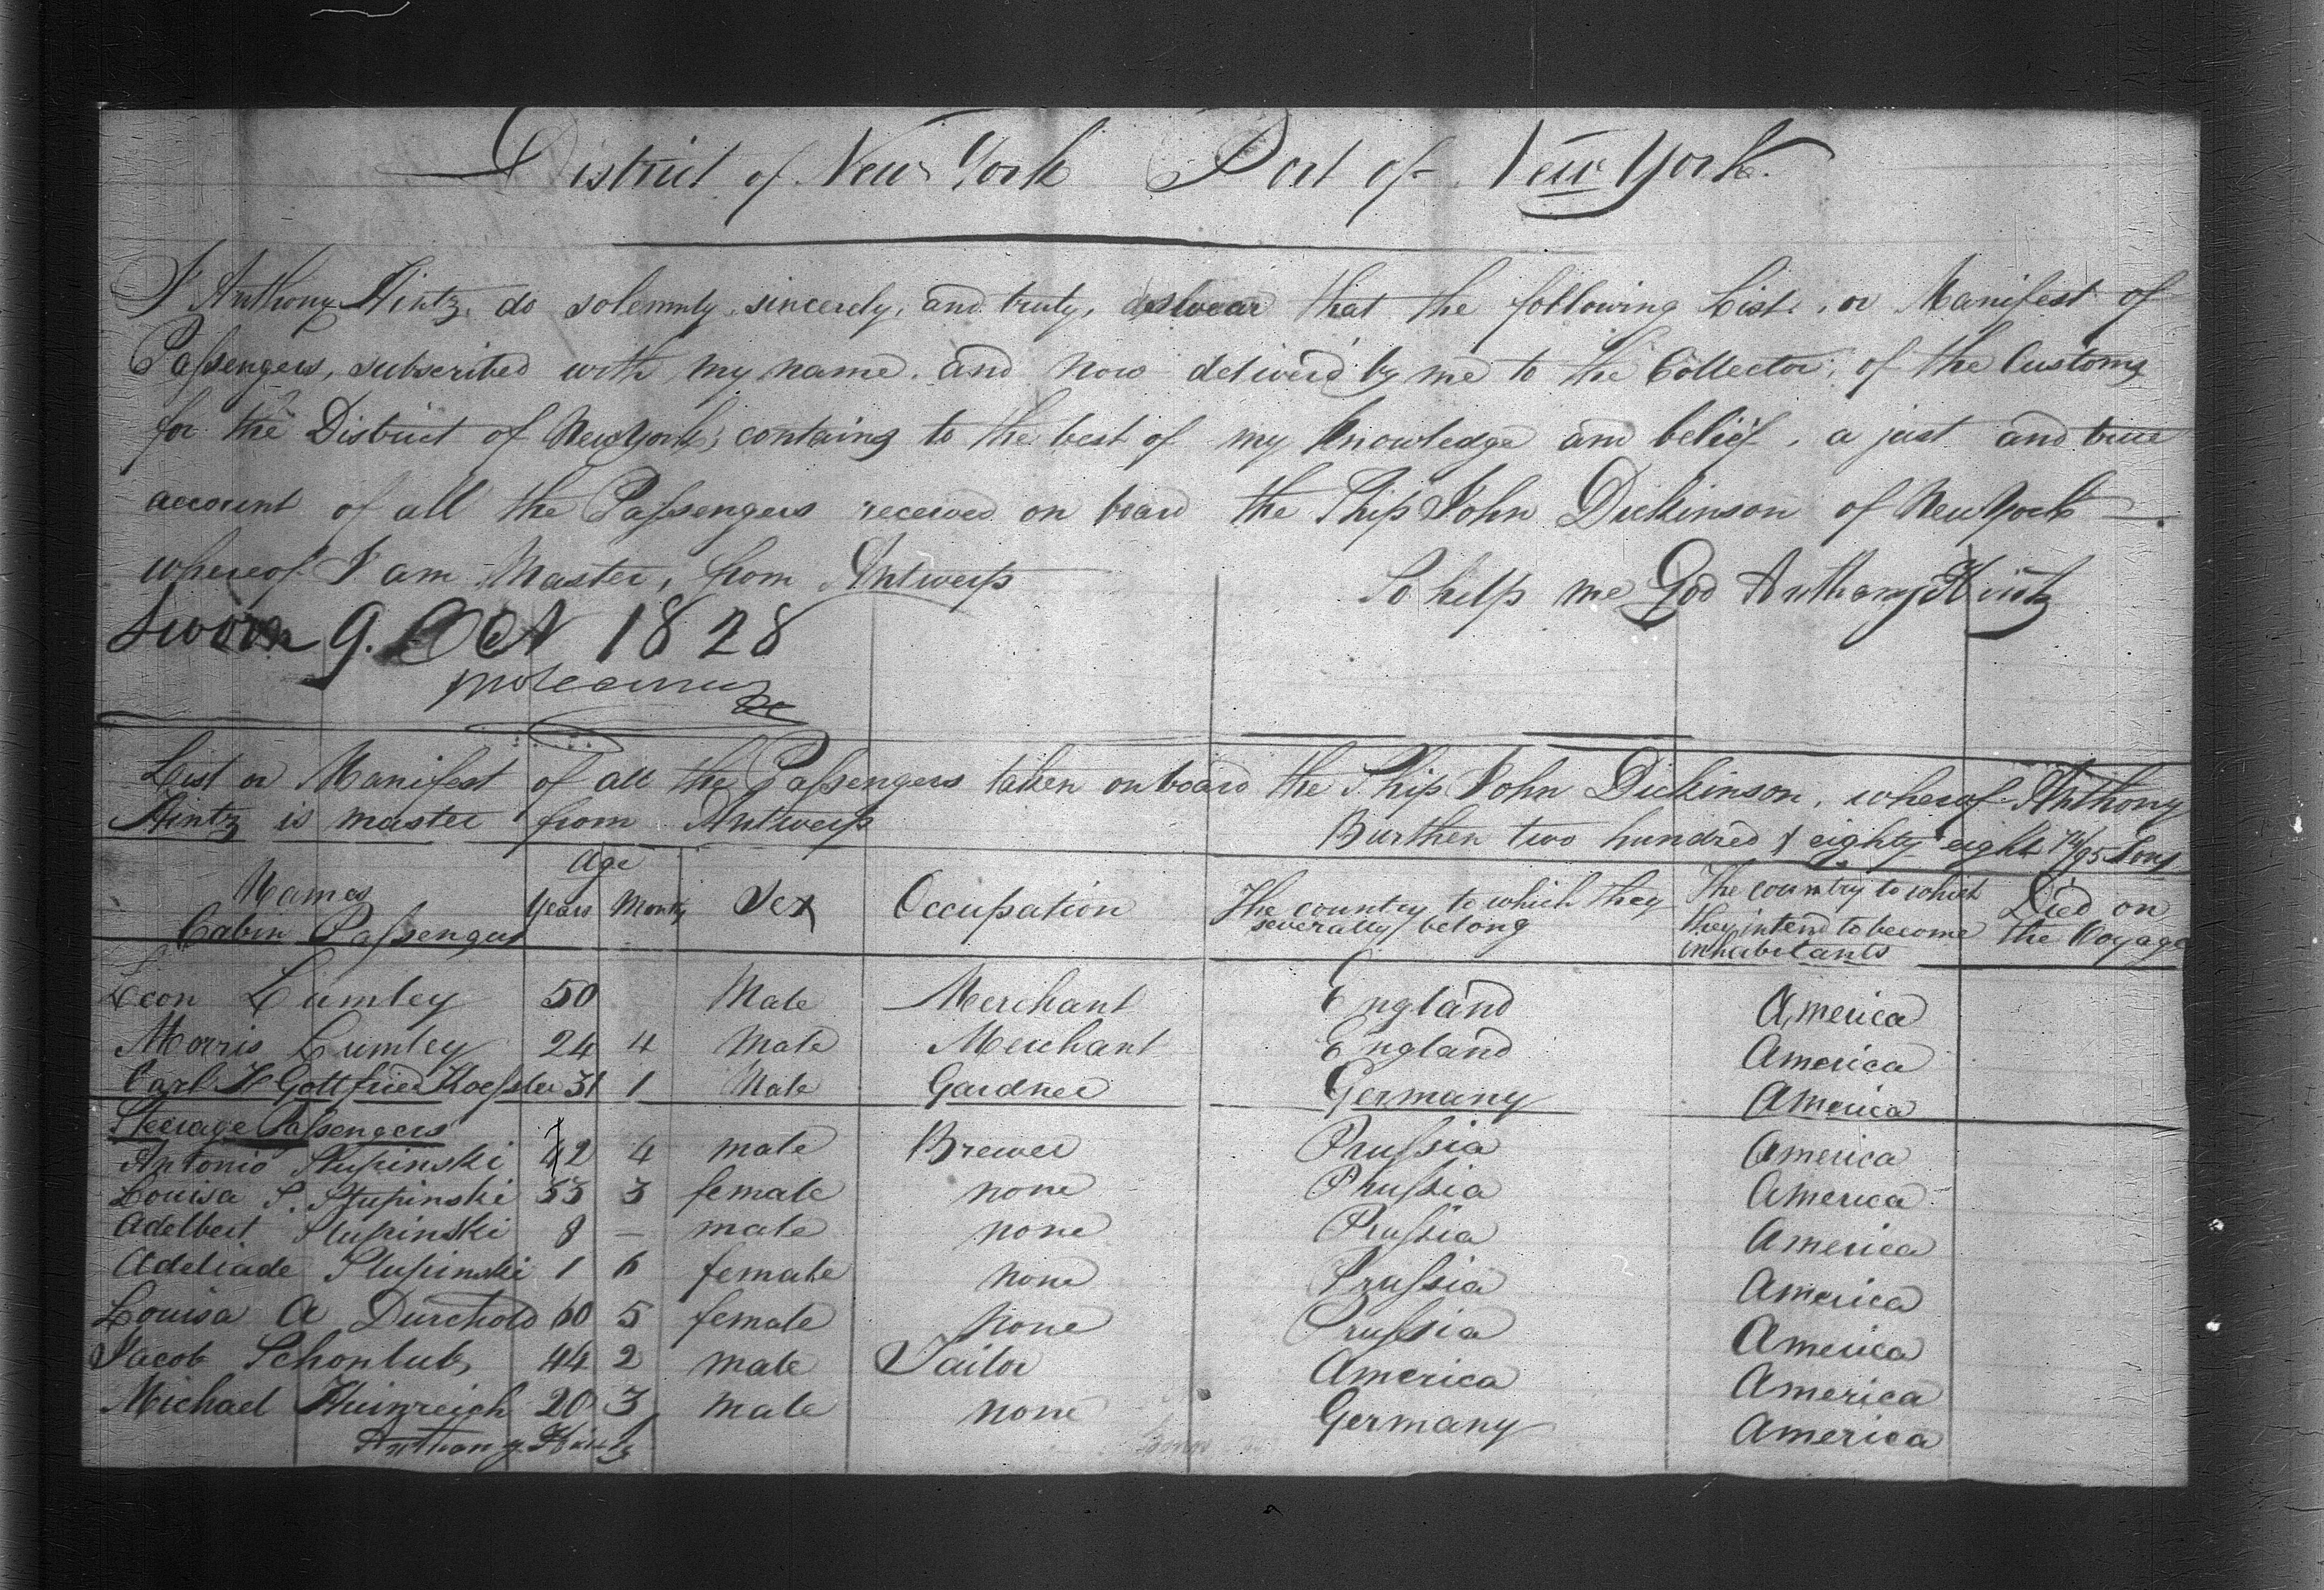 District of New York Port of New York.
I Anthony Hintz, do solemnly, sincerely, and truly, swear that the following List, or Manifest of
Passengers, subscribed with my name, and now deliverd by me to the Collector, of the Customs
for the District of New York, contains to the best of my knowledge and belief, a just and true
account of all the Passengers received on board the Ship John Dickinson of New York
whereof I am Master, from Antwerp
So help me God Anthony Hintz
Sworn 9. Oct 1828
List or Manifest of all the Passengers taken on board the Ship John Dickinson, whereof Anthony
Hintz is master from Antwerp Burthen two hundred & eighty eight /95 tons
Names Age Sex Occupation The country to which they severally belong The country to which they intend to become inhabitants Died on the Voyage
Cabin Passengers Years Months
Leon Lumley 50 Male Merchant England America
Morris Lumley 24 4 Male Merchant England America
Carl H Gottfried Koessler 31 1 Male Gardner Germany America
Steerage Passengers
Antonio Stupinski 42 4 male Brewer Prussia America
Louisa S. Stupinski 33 3 female none Prussia America
Adelbert Stupinski 8 – male none Prussia America
Adeliade Stupinski 1 6 female none Prussia America
Louisa A Durchold 60 5 female none Prussia America
Jacob Schonlub 44 2 male Tailor America America
Michael Heinreich 20 3 male none Germany America
Anthony Hintz